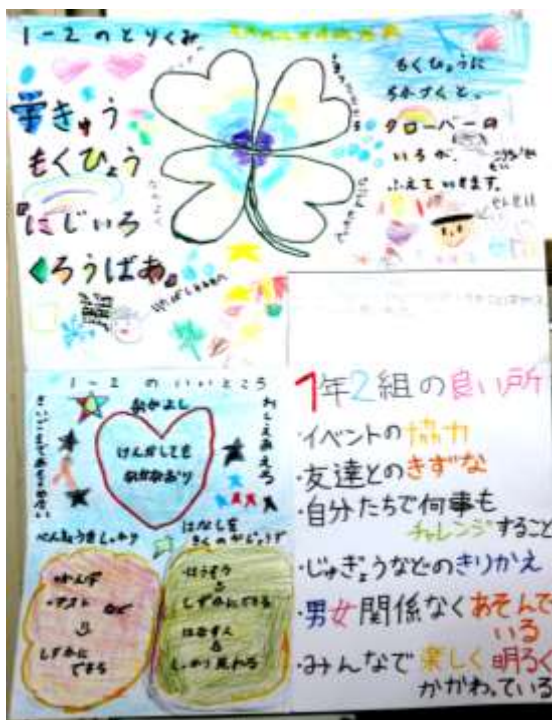 1-2のとりくみ
学きゅう
もくひょう
にじいろ
くろうばあ。
もくひょうに
ちかづくと。
クローバーの
いろが、
ふえていきます。
1-2のいいところ
なかよし
けんかしても
なかなおり
さいごまであきらめない
おしえあえる
べんきょうをしっかり
はなしを
きくのがじょうず
かんじ
テスト など
しずかに
できる
ほうそう
しずかにできる
はなす人
しっかり見れる
1年2組の良い所
・イベントの協力
・友達とのきずな
・自分たちで何事も
チャレンジすること
・じゅぎょうなどのきりかえ
・男女関係なくあそんで
いる
・みんなで楽しく明るく
かかわっている